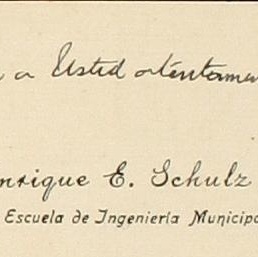 a Usted atentamen
nrique E. Schulz
Escuela de Ingeniería Municipa